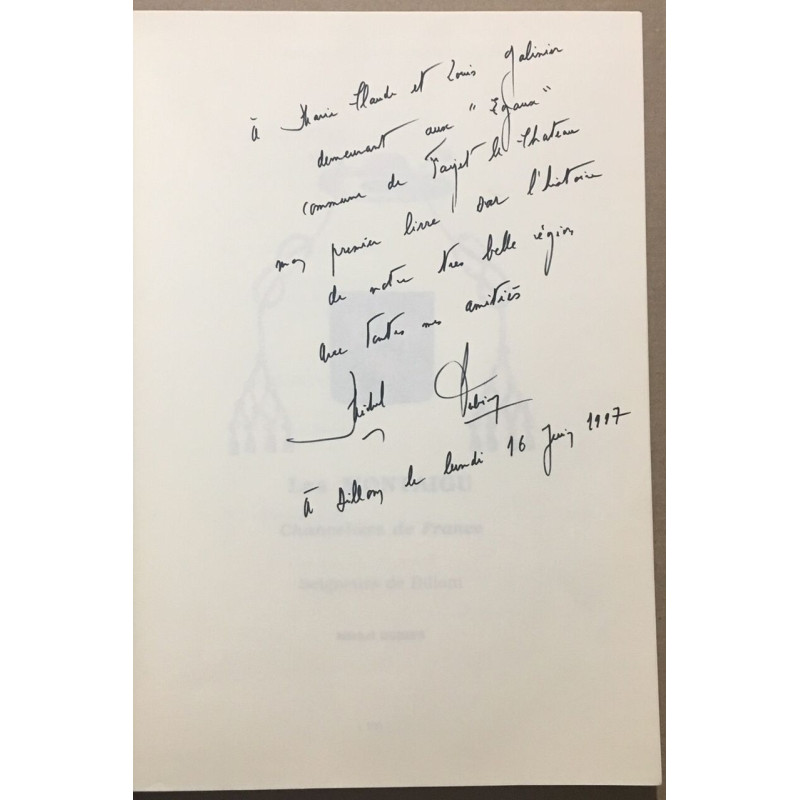 à Marie Claude et Louis Galinier
demeurant aux "Egaux"
commune de Fayet le Chateau
mon premier livre sur l'histoire
de notre très belle région
avec toutes mes amitiés
Michel
à Billom le lundi 16 Juin 1997
Les MONTAIGU
Chanceliers de France
Seigneurs de Billom